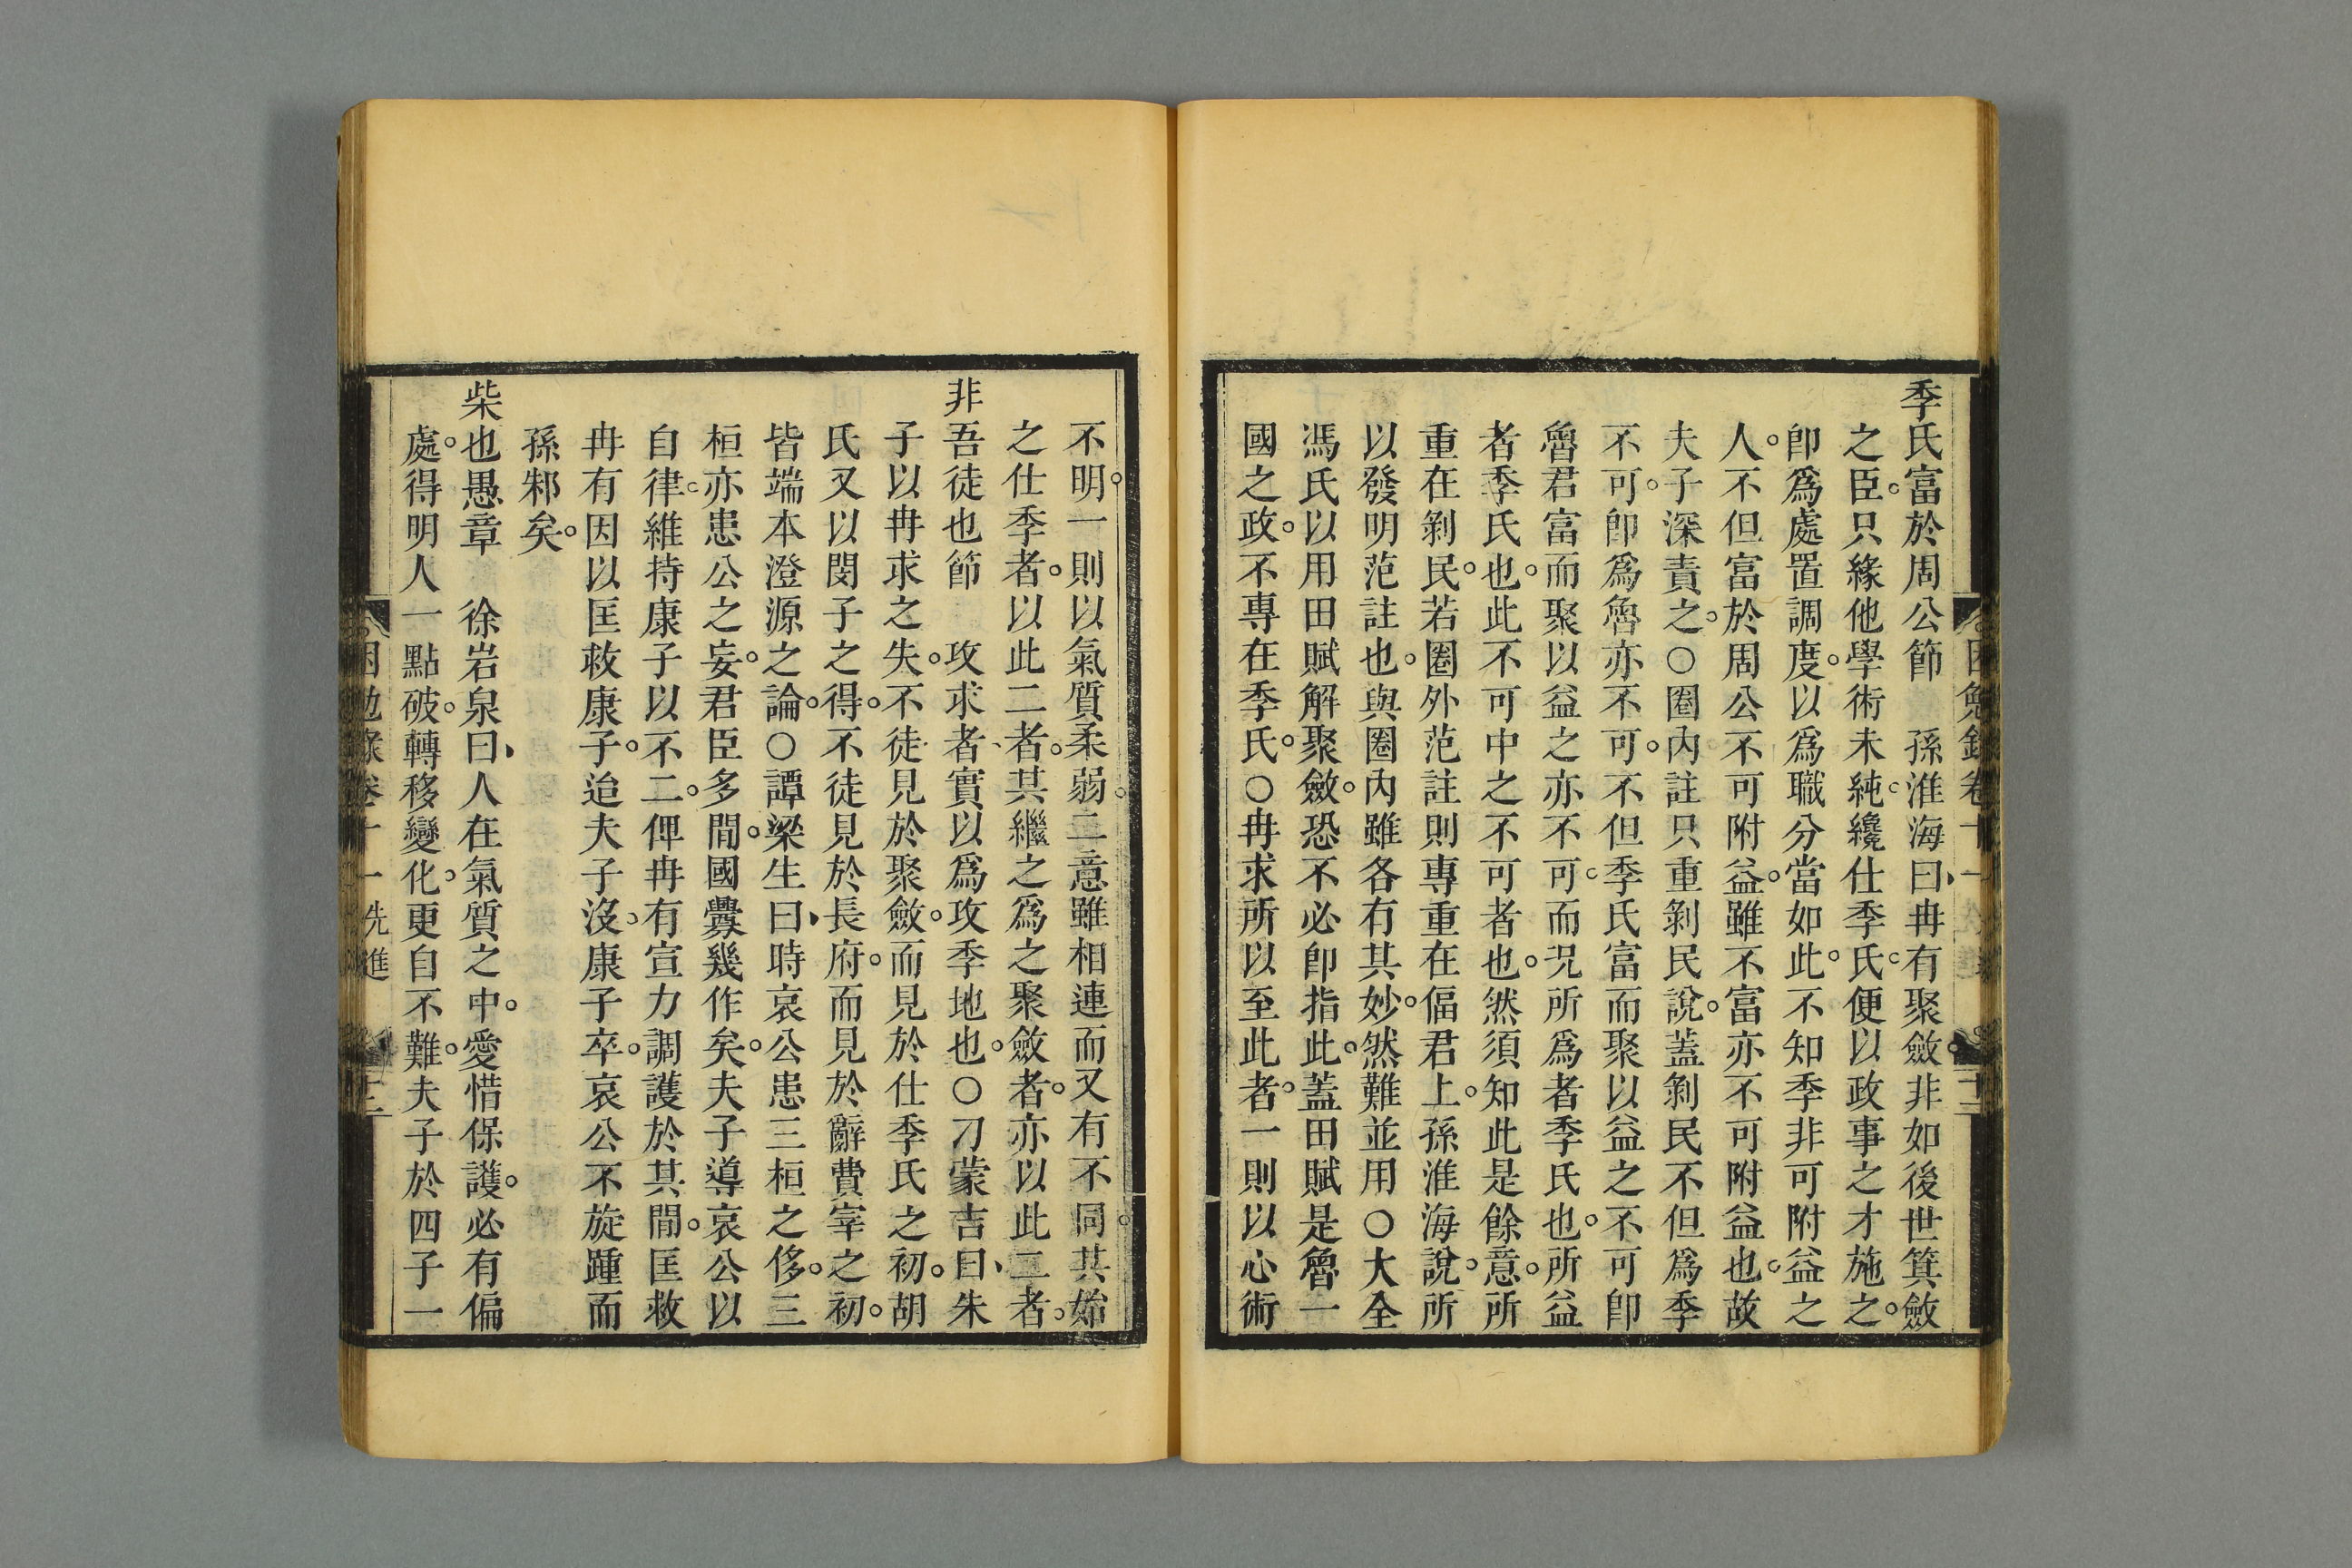 季氏富於周公節　孫淮海曰冉有聚斂非如後世箕斂
之臣。只緣他學術未純。纔仕季氏。便以政事之才施之。
卽爲處置調度。以爲職分當如此。不知季非可附益之
人。不但富於周公不可附益。雖不富亦不可附益也。故
夫子深責之。○圈內註只重剝民說。蓋剝民不但爲季
不可。卽爲魯亦不可。不但季氏富而聚以益之不可卽
魯君富而聚以益之亦不可。而况所爲者季氏也。所益
者季氏也。此不可中之不可者也。然須知此是餘意。所
重在剝民。若圈外范註則專重在偪君上。孫淮海說。所
以發明范註也。與圈內雖各有其妙。然難並用○大全
馮氏以用田賦解聚斂。恐不必卽指此。蓋田賦是魯一
國之政。不專在季氏。○冉求所以至此者。一則以心術
不明。一則以氣質柔弱。二意雖相連而又有不同。其始
之仕季者。以此二者。其繼之爲之聚斂者。亦以此二者。
非吾徒也節　攻求者實以爲攻季地也。○刁蒙吉曰朱
子以冉求之失。不徒見於聚斂。而見於仕季氏之初。胡
氏又以閔子之得。不徒見於長府。而見於辭費宰之初。
皆端本澄源之論。○譚梁生曰時哀公患三桓之侈。三
桓亦患公之妄。君臣多間。國釁幾作矣。夫子導哀公以
自律。維持康子以不二。俾冉有宣力調護於其間。匡救
冉有因以匡救康子。迨夫子沒。康子卒。哀公不旋踵而
孫邾矣。
柴也愚章　徐岩泉曰人在氣質之中。愛惜保護。必有偏
處。得明人一點破。轉移變化。更自不難。夫子於四子一
先進